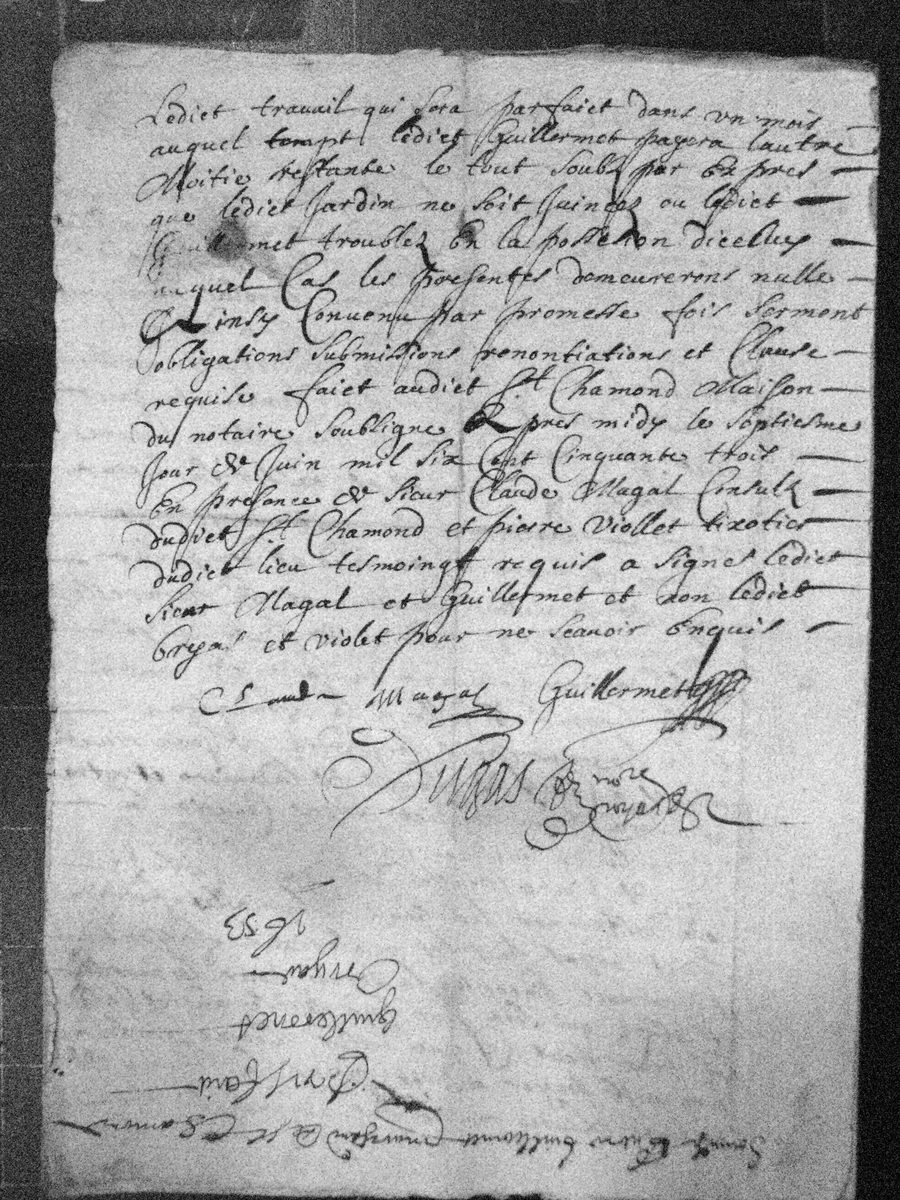 Ledict travail qui sera parfaict dans un mois
auquel tempt ledict Guillermet payera lautre
Moitie restante le tout soubz par expres
que ledict Jardin ne soit ou ledict
Guillermet troublez en la possession dicelluy
auquel Cas les presentes demeureront nulle
Convenu par promesse fois serment
obligations submissions renontiations et Clause
requise faict audict St Chamond Maison
du notaire soubsigne apres midy le septiesme
Jour de Juin mil six Cent Cinquante trois
En presance de sieur Claude Magal Consulz
dudict St Chamond et pierre Viollet
dudict lieu tesmoingt requis a signes ledict
Sieur Magal et Guillermet et non ledict
et violet pour ne scavoir Enquis
Claude Magal Guillermet
Dugas nore
1653
Guillermet